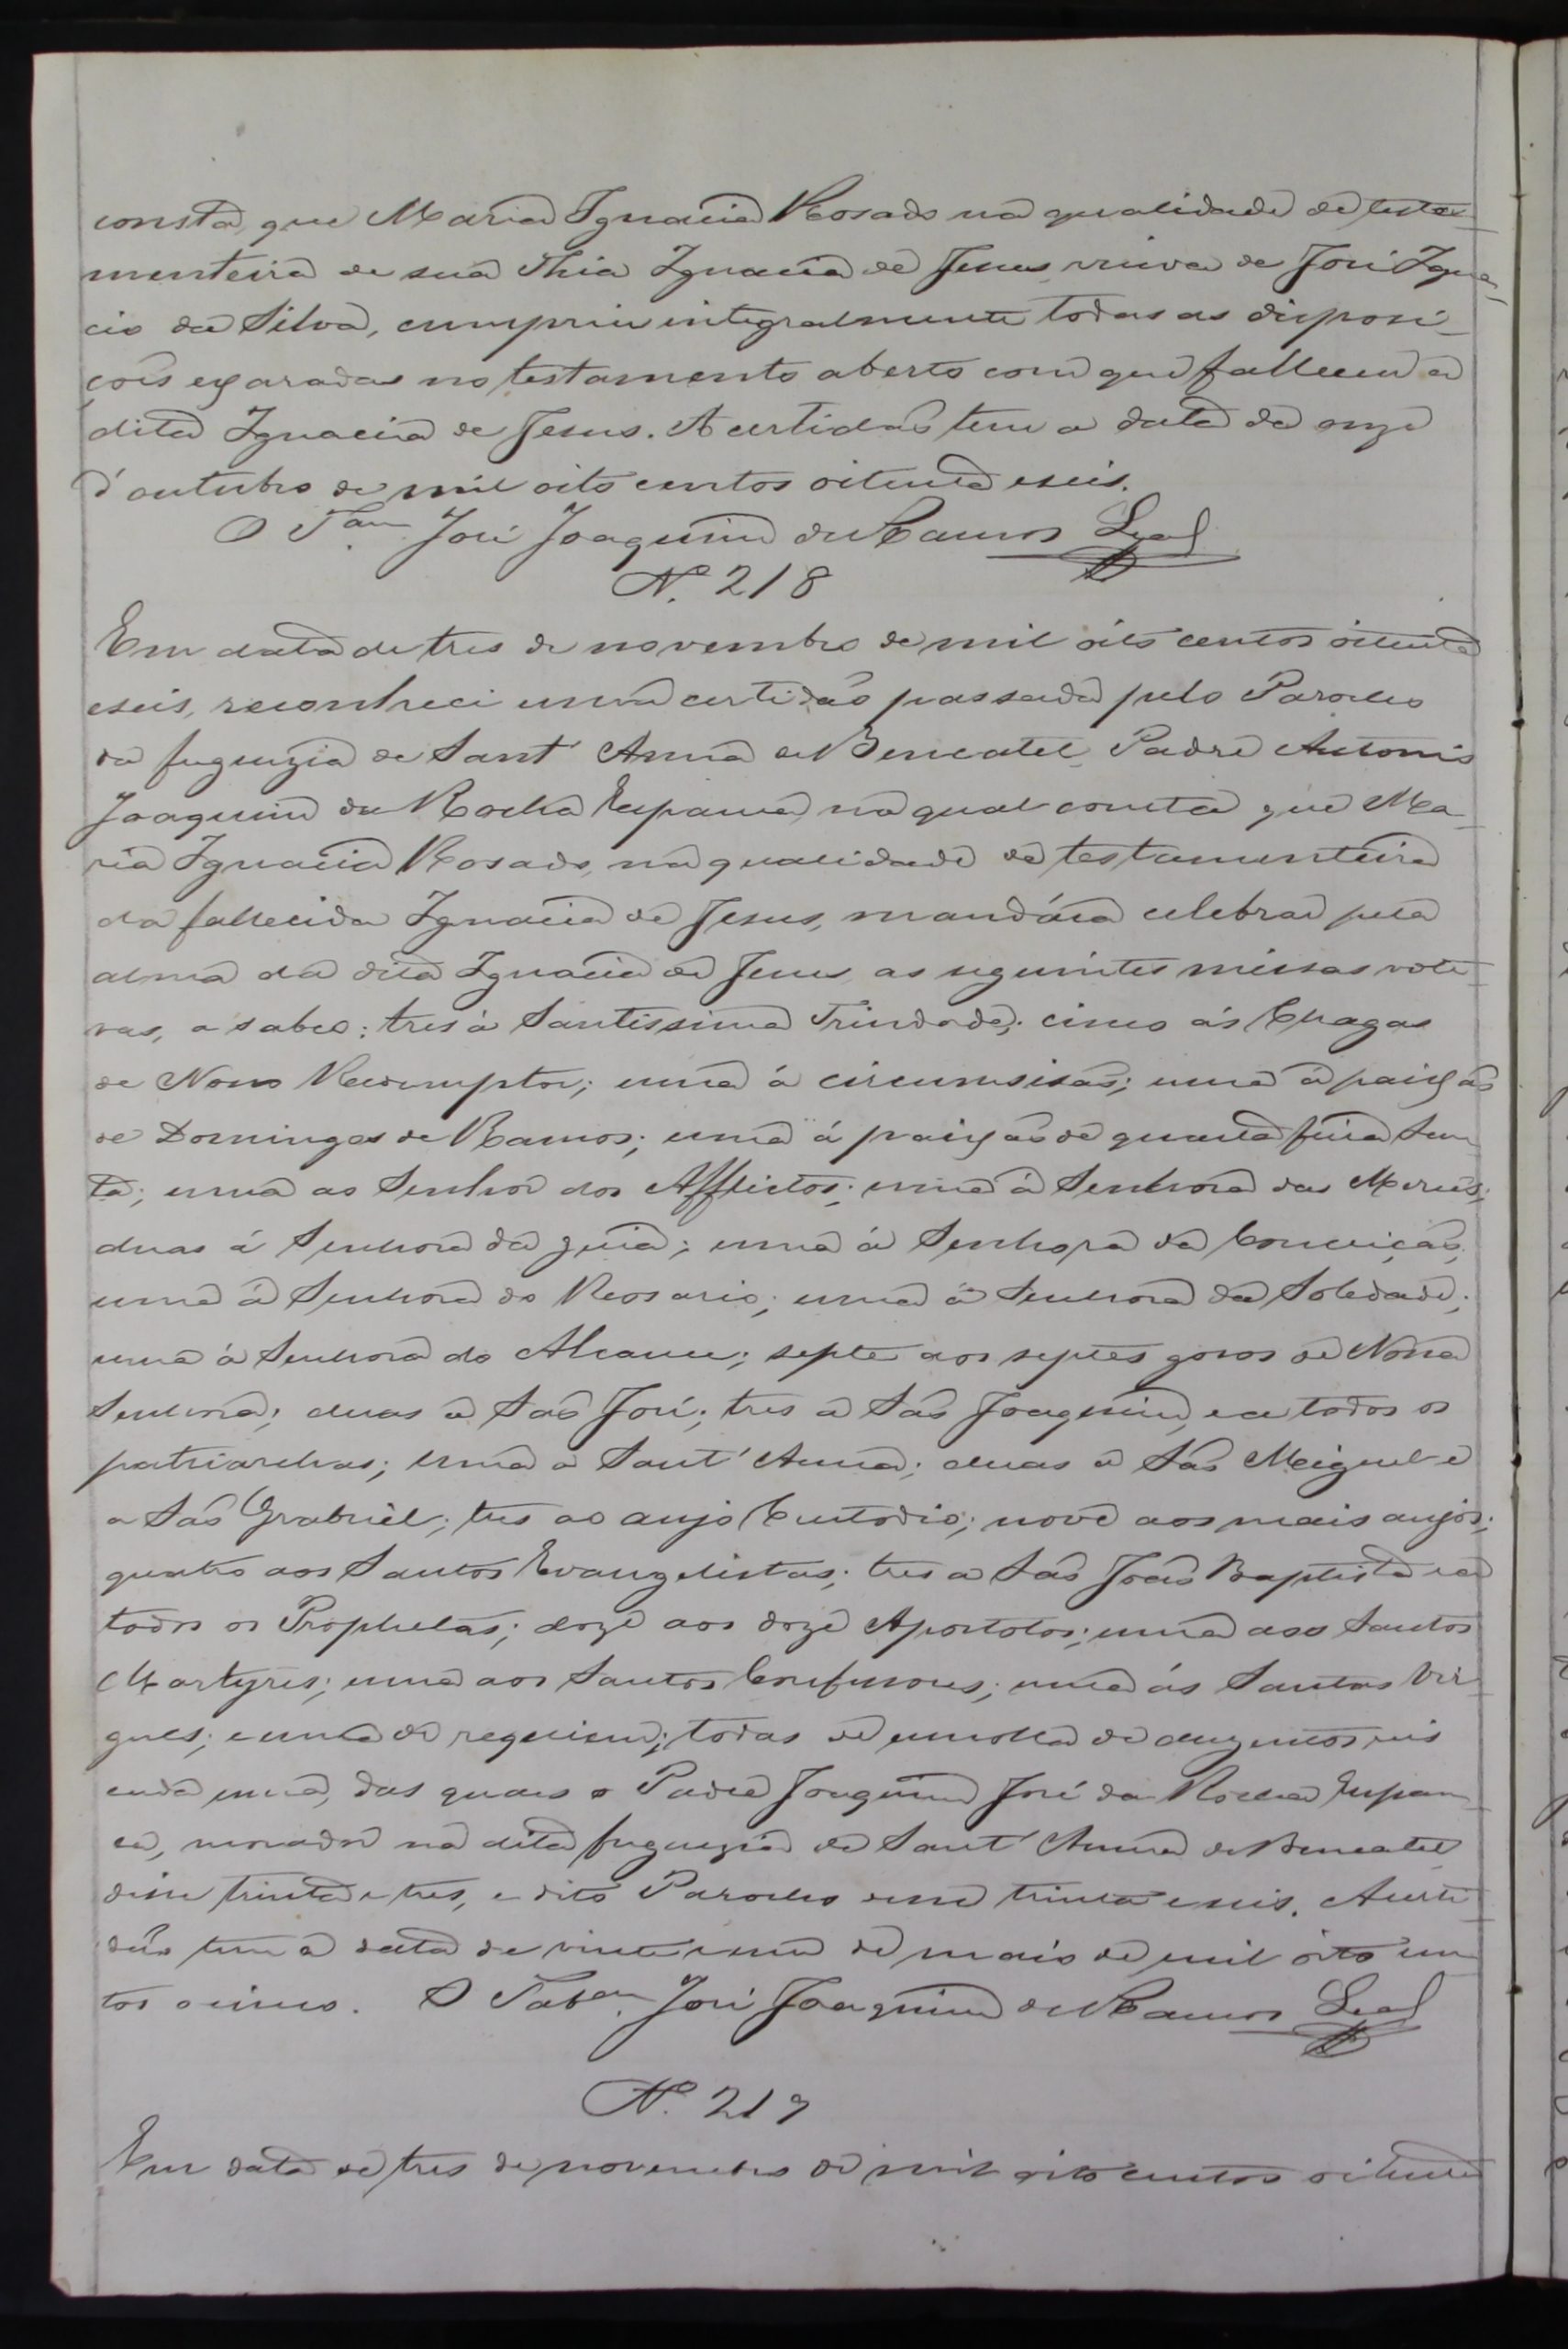 consta, que Maria Ignacia Rosado na qualidade de testa-
menteira de sua Thia Ignacia de Jesus, viuva de José Igna-
cio da Silva, cumpriu integralmente todas as disposi-
ções exaradas no testamento aberto com que falleceu a
dita Ignacia de Jesus. A certidão tem a data de onze
d'outubro de mil oito centos oitenta e seis.
O T.am José Joaquim de Ramos Leal
N.º 218
Em data de tres de novembro de mil oito centos oitenta
e seis, reconheci uma certidão passada pelo Parocho
da freguezia de Sant' Anna de Bencatel, Padre Antonio
Joaquim da Rocha Espanca, na qual consta que Ma-
ria Ignacia Rosado, na qualidade de testamenteira
da fallecida Ignacia de Jesus, mandára celebrar pela
alma da dita Ignacia de Jesus as seguintes missas voti-
vas, a saber: tres á Santissima Trindade; cinco ás Chagas
de Nosso Redemptor; uma á circumsisão; uma á paixão
de Domingos de Ramos; uma á paixão de quarta feira San-
ta; uma ao Senhor dos Afflictos; uma á Senhora das Mercês;
duas á Senhora da guia; uma á Senhora da Conceição;
uma á Senhora do Rosario; uma á Senhora da Soledade;
uma á Senhora do Alcance; septe aos septes gosos de Nossa
Senhora; duas a São José; tres a São Joaquim, e a todos os
patriarchas; uma a Sant' Anna; duas a São Miguel e
a São Grabriel; tres ao anjo Custodio; nove aos mais anjos;
quatro aos Santos Evangelistas; tres a São João Baptista e a
todos os Prophetas; doze aos doze Apostolos; uma aos Santos
Martyres; uma aos Santos Confessores; uma ás Santas Vir-
gens; e uma de requiem; todas de esmolla de duzentos reis
cada uma, das quaes o Padre Joaquim José da Rocha Espan-
ca, morador na dita freguezia de Sant' Anna de Bencatel
disse trinta e tres, e dito Parocho disse trinta e seis. A certi-
dão tem a data de vinte e um de maio de mil oito cen-
tos e cinco. O Tab.am José Joaquim de Ramos Leal
N.º 219
Em data de tres de novembro de mil oito centos oitenta